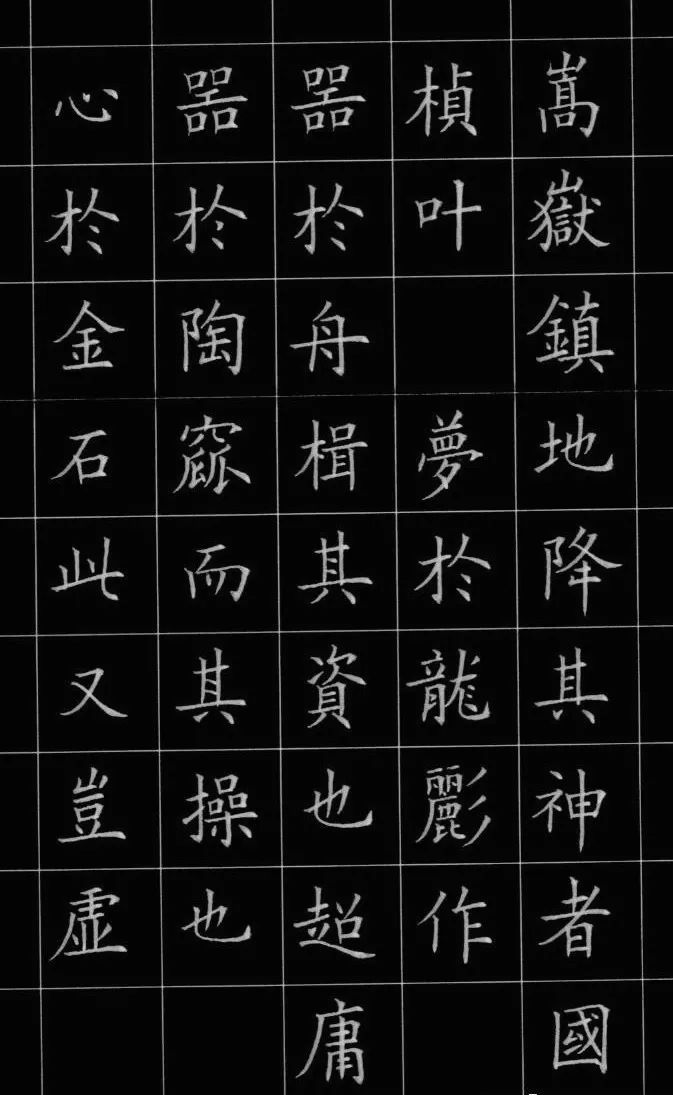 嵩嶽鎮地降其神者國
楨叶 夢於龍彲作
器於舟楫其資也超庸
器於陶窳而其操也
心於金石此又豈虛